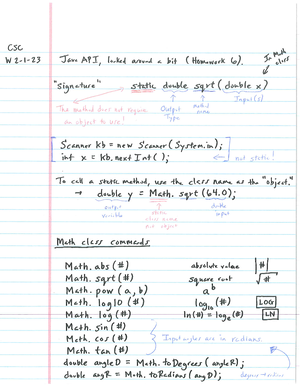 CSC
W 2-1-23
Java API, looked around a bit (Homework 6).
In Math class
"signature"
static double sqrt (double x)
The method does not require an object to use!
Output Type
method name
Input(s)
Scanner kb = new Scanner (System.in);
int x = kb.nextInt ();
not static!
To call a static method, use the class name as the "object."
→ double y = Math.sqrt (64.0);
output variable
static
class name
double input
Math class commands
Math.abs (#) absolute value |#|
Math.sqrt (#) square root √#
Math.pow (a, b) a^b
Math.log10 (#) log₁₀(#) LOG
Math.log (#) ln(#) = logₑ(#) LN
Math.sin (#)
Math.cos (#) Input angles are in radians.
Math.tan (#)
double angleD = Math.toDegrees (angleR);
double angR = Math.toRadians (angD);